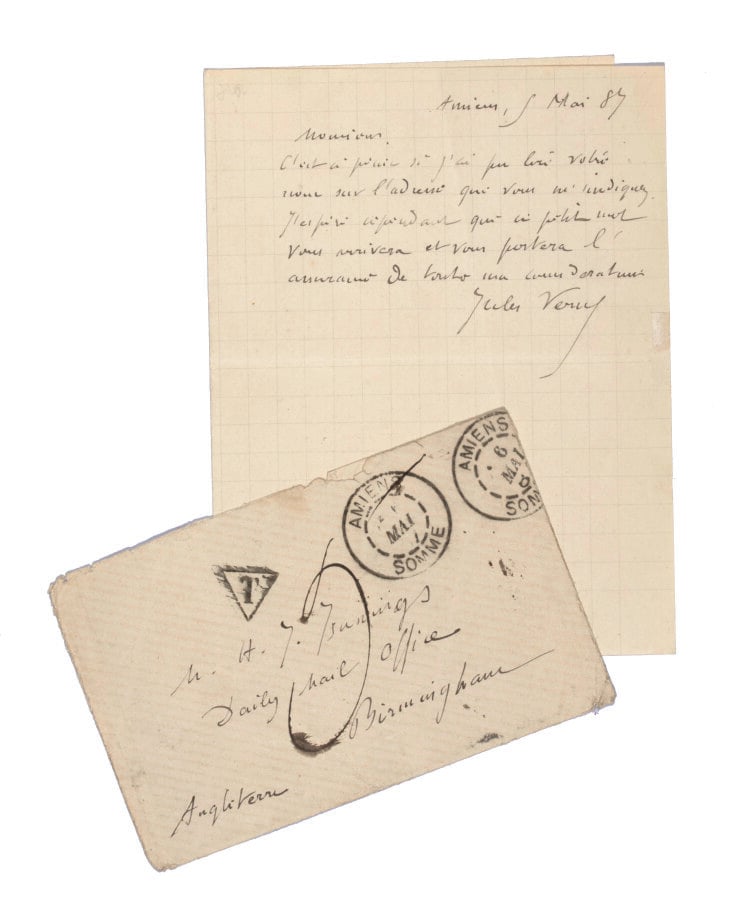 Amiens, 5 Mai 87
Monsieur,
C'est à peine si j'ai pu lire votre
nom sur l'adresse que vous m'indiquez.
J'espère cependant que ce petit mot
vous arrivera et vous portera l'
assurance de toute ma considération
Jules Verne
AMIENS
6
MAI
SOMME
AMIENS
MAI
SOMME
T
M. H. J. Jennings
Daily Mail Office
Birmingham
Angleterre